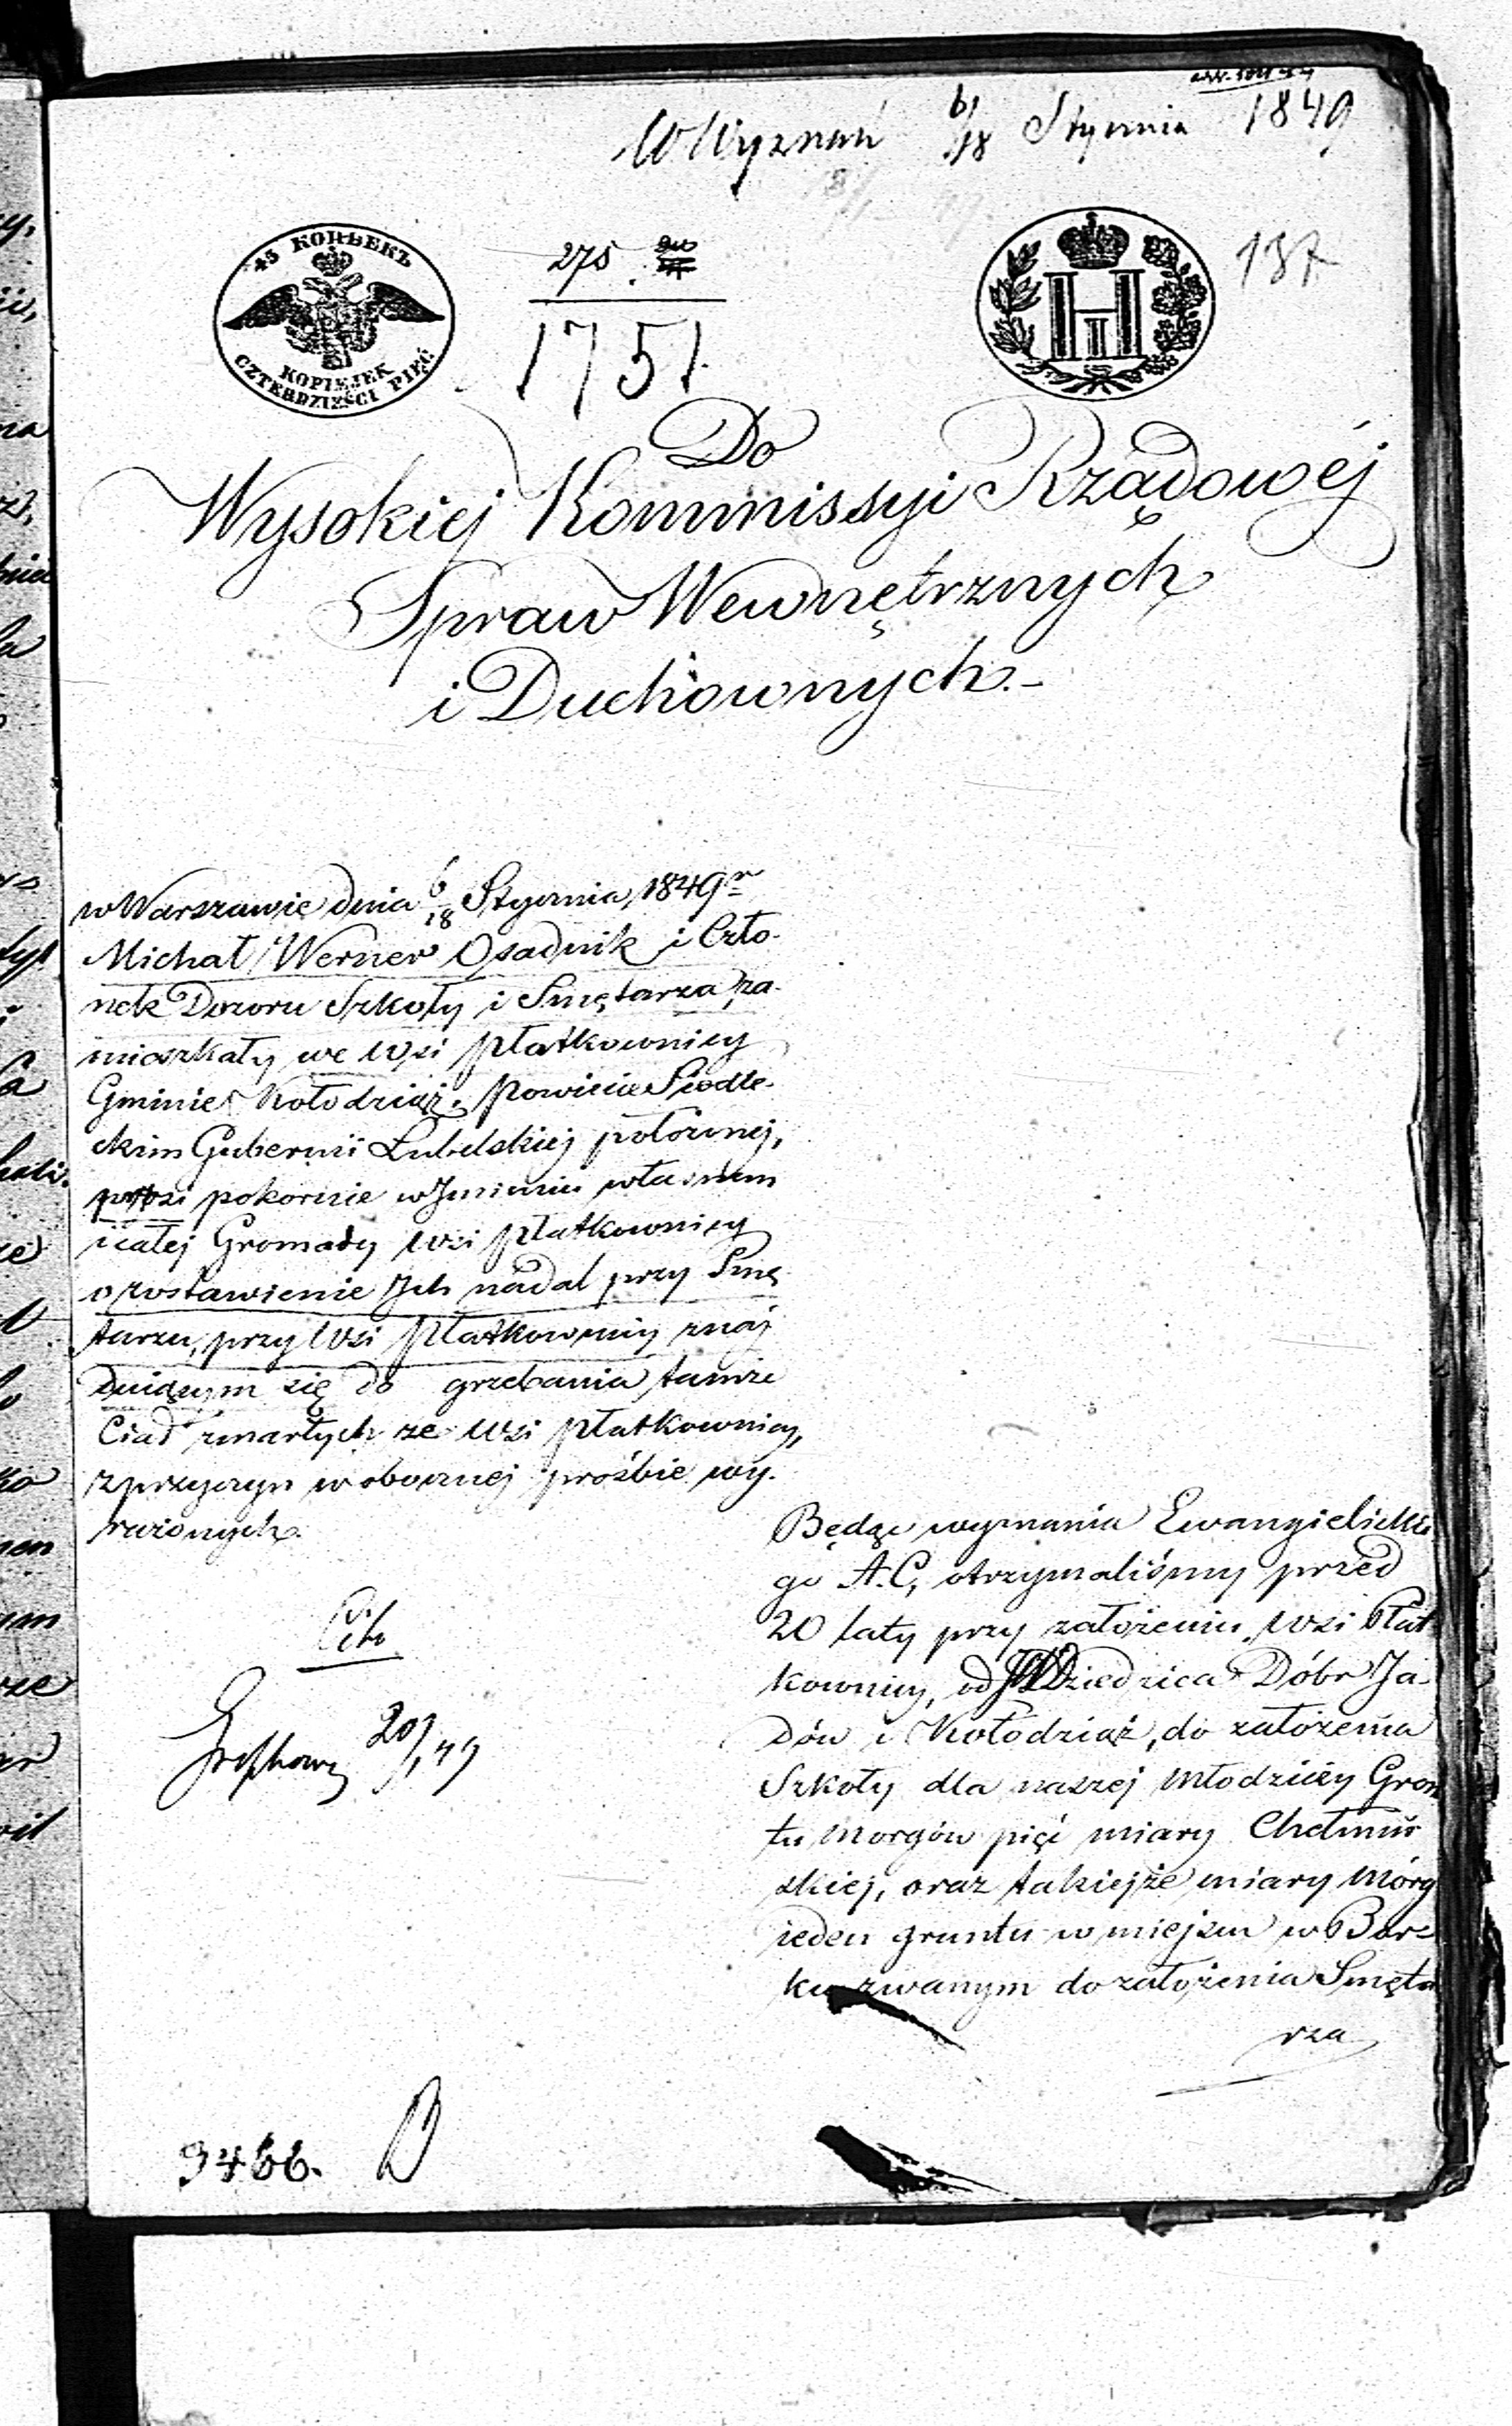 W Wyznań 6/18 Stycznia 1849
45 КОПѢЕКЪ
KOPIEJEK
CZTERDZIEŚCI PIĘĆ
275
1751.
137
Do
Wysokiej Kommissyi Rządowéj
Spraw Wewnętrznych
i Duchownych.-
w Warszawie dnia 6/18 Stycznia 1849 r
Michał Werner Osadnik i Czło-
nek Dozoru Szkoły i Smętarza za-
mieszkały we Wsi Płatkownicy
Gminie Kołodziąż. Powiecie Siedle-
ckim Gubernii Lubelskiej położonej,
prosi pokornie w Jmieniu własnem
i całej Gromady Wsi Płatkownicy
o zostawienie Jch nadal przy Smę
tarzu, przy Wsi Płatkownicy znaj
duiącym się do grzebania tamże
Ciał zmarłych ze Wsi Płatkownicy,
z przyczyn w obecnej prośbie wy-
rażonych.
Cito
20/1 49
Będąc wyznania Ewangielickie
go A.C, otrzymaliśmy przed
20 laty przy założeniu Wsi Płat
kownicy, od JW Dziedzica Dóbr Ja-
dów i Kołodziąż, do założenia
Szkoły dla naszej Młodzieży Gron
tu Morgów pięć miary Chełmiń
skiej, oraz takiejże miary Mórg
ieden gruntu w miejscu w Bor-
ku zwanym do założenia Smęta
rza
3466.